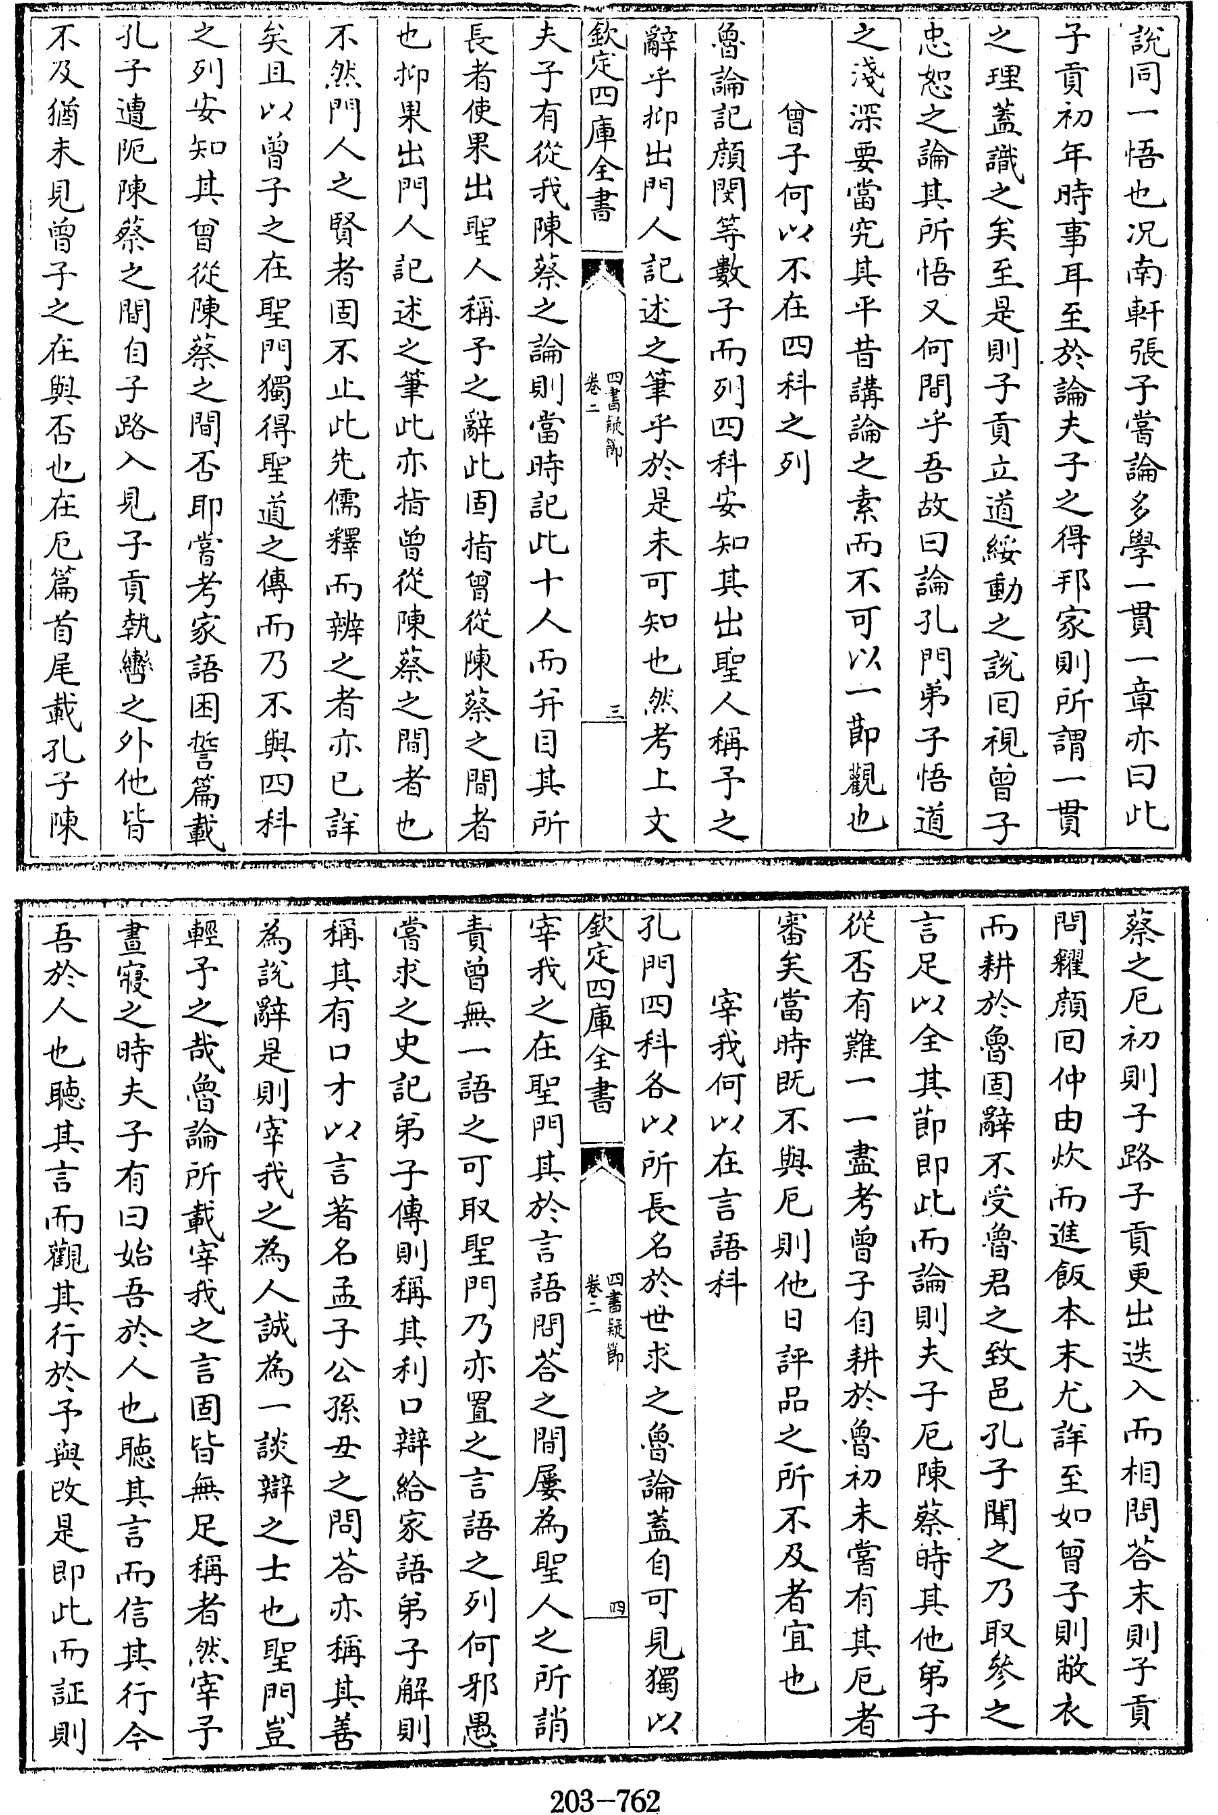 說同一悟也况南軒張子嘗論多學一貫一章亦曰此
子貢初年時事耳至於論夫子之得邦家則所謂一貫
之理蓋識之矣至是則子貢立道綏動之說回視曾子
忠恕之論其所悟又何間乎吾故曰論孔門弟子悟道
之淺深要當究其平昔講論之素而不可以一節觀也
曾子何以不在四科之列
魯論記顔閔等數子而列四科安知其出聖人稱予之
辭乎抑出門人記述之筆乎於是未可知也然考上文
欽定四庫全書
四書疑節
卷二
三
夫子有從我陳蔡之論則當時記此十人而并目其所
長者使果出聖人稱予之辭此固指曾從陳蔡之間者
也抑果出門人記述之筆此亦指曾從陳蔡之間者也
不然門人之賢者固不止此先儒釋而辨之者亦已詳
矣且以曾子之在聖門獨得聖道之傳而乃不與四科
之列安知其曾從陳蔡之間否耶嘗考家語困誓篇載
孔子遭阨陳蔡之間自子路入見子貢執轡之外他皆
不及猶未見曾子之在與否也在厄篇首尾載孔子陳
蔡之厄初則子路子貢更出迭入而相問答末則子貢
問糴顔回仲由炊而進飯本末尤詳至如曾子則敝衣
而耕於魯固辭不受魯君之致邑孔子聞之乃取參之
言足以全其節即此而論則夫子厄陳蔡時其他弟子
從否有難一一盡考曾子自耕於魯初未嘗有其厄者
審矣當時既不與厄則他日評品之所不及者宜也
宰我何以在言語科
孔門四科各以所長名於世求之魯論蓋自可見獨以
欽定四庫全書
四書疑節
卷二
四
宰我之在聖門其於言語問答之間屢為聖人之所誚
責曾無一語之可取聖門乃亦置之言語之列何邪愚
嘗求之史記弟子傳則稱其利口辯給家語弟子解則
稱其有口才以言著名孟子公孫丑之問答亦稱其善
為說辭是則宰我之為人誠為一談辯之士也聖門豈
輕予之哉魯論所載宰我之言固皆無足稱者然宰予
晝寢之時夫子有曰始吾於人也聽其言而信其行今
吾於人也聽其言而觀其行於予與改是即此而証則
203-762